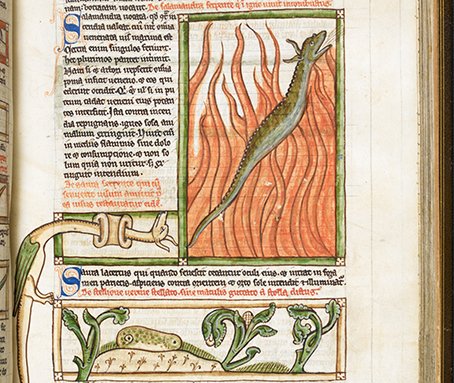 De salamandra serpente q igni uiuit
Salamandra uocata. qd con
ualeat. Cui int omnia
uenenata uis maxima est.
Cetera enim singulos feriunt.
hec plurimos pariter interimit.
Nam si & arbori irrepserit omnia
poma inficit ueneno. & eos qui
ederint occidit. Q & si in pu
teum cadat ueneni eius potan
tes interficit. Ista contra incen
dia repugnans. ignes sola ani
malium extinguit. Viuit enim
in mediis flammis sine dolo
re & consumptione. & non so
lum quia non uritur. sȝ ex
tinguit incendium.
De saura serpente qui cū
senuerit uisum amittit & p
ea uisus restauratur eidē.
Saura lacertus qui quando senescit cecantur oculi eius. & intrat in fora
men parietis. aspiciens contra orientem & orto sole intendit & illuminat
De stellione uerme stellato siue maculis guttato a stellis dictus.